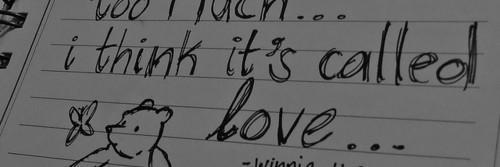 too much...
i think it's called
love...
-winnie the